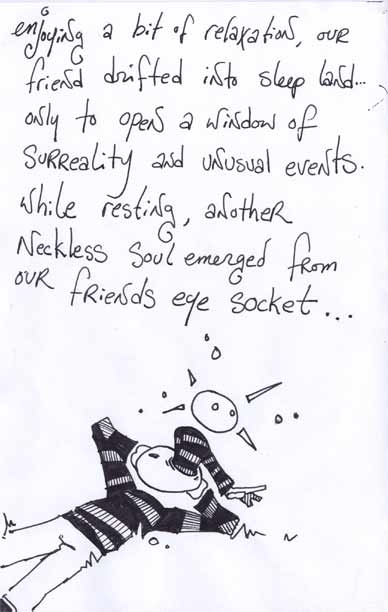 enjoying a bit of relaxation, our
friend drifted into sleep land...
only to open a window of
surreality and unusual events.
while resting, another
neckless soul emerged from
our friends eye socket...